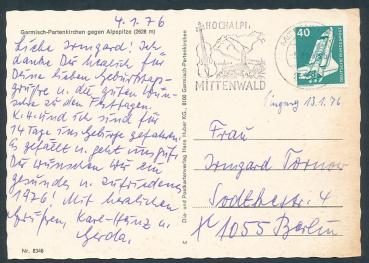 4.1.76
Garmisch-Partenkirchen gegen Alpspitze (2628 m)
Liebe Irmgard! Ich
danke Dir herzlich für
Deine lieben Geburtstags-
grüße u. die guten Wün-
sche zu den Festtagen.
K.H. und ich sind für
14 Tage ins Gebirge gefahren.
Es gefällt u. geht uns gut.
Dir wünschen wir ein
gesundes u. zufriedenes
1976! Mit herzlichen
Grüßen, Karl-Heinz u.
Gerda.
Nr. 8348
© Dia- und Postkartenverlag Hans Huber KG., 8100 Garmisch-Partenkirchen
HOCHALPI
MITTENWALD
40
DEUTSCHE BUNDESPOST
Eingang 13.1.76
Frau
Irmgard Tornow
4
1055 Berlin